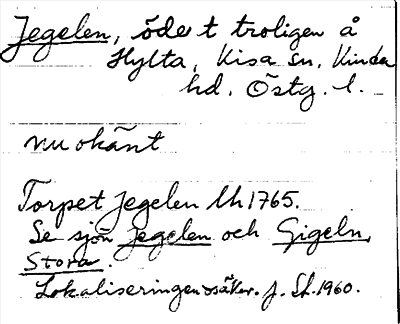 Jegelen, ödet troligen å
Hylta, Kisa sn, Kinda
hd. Östg. l.
nu okänt
Torpet Jegelen lh 1765.
Se sjön Jegelen och Gigeln,
Stora.
Lokaliseringen osäker. J. St. 1960.